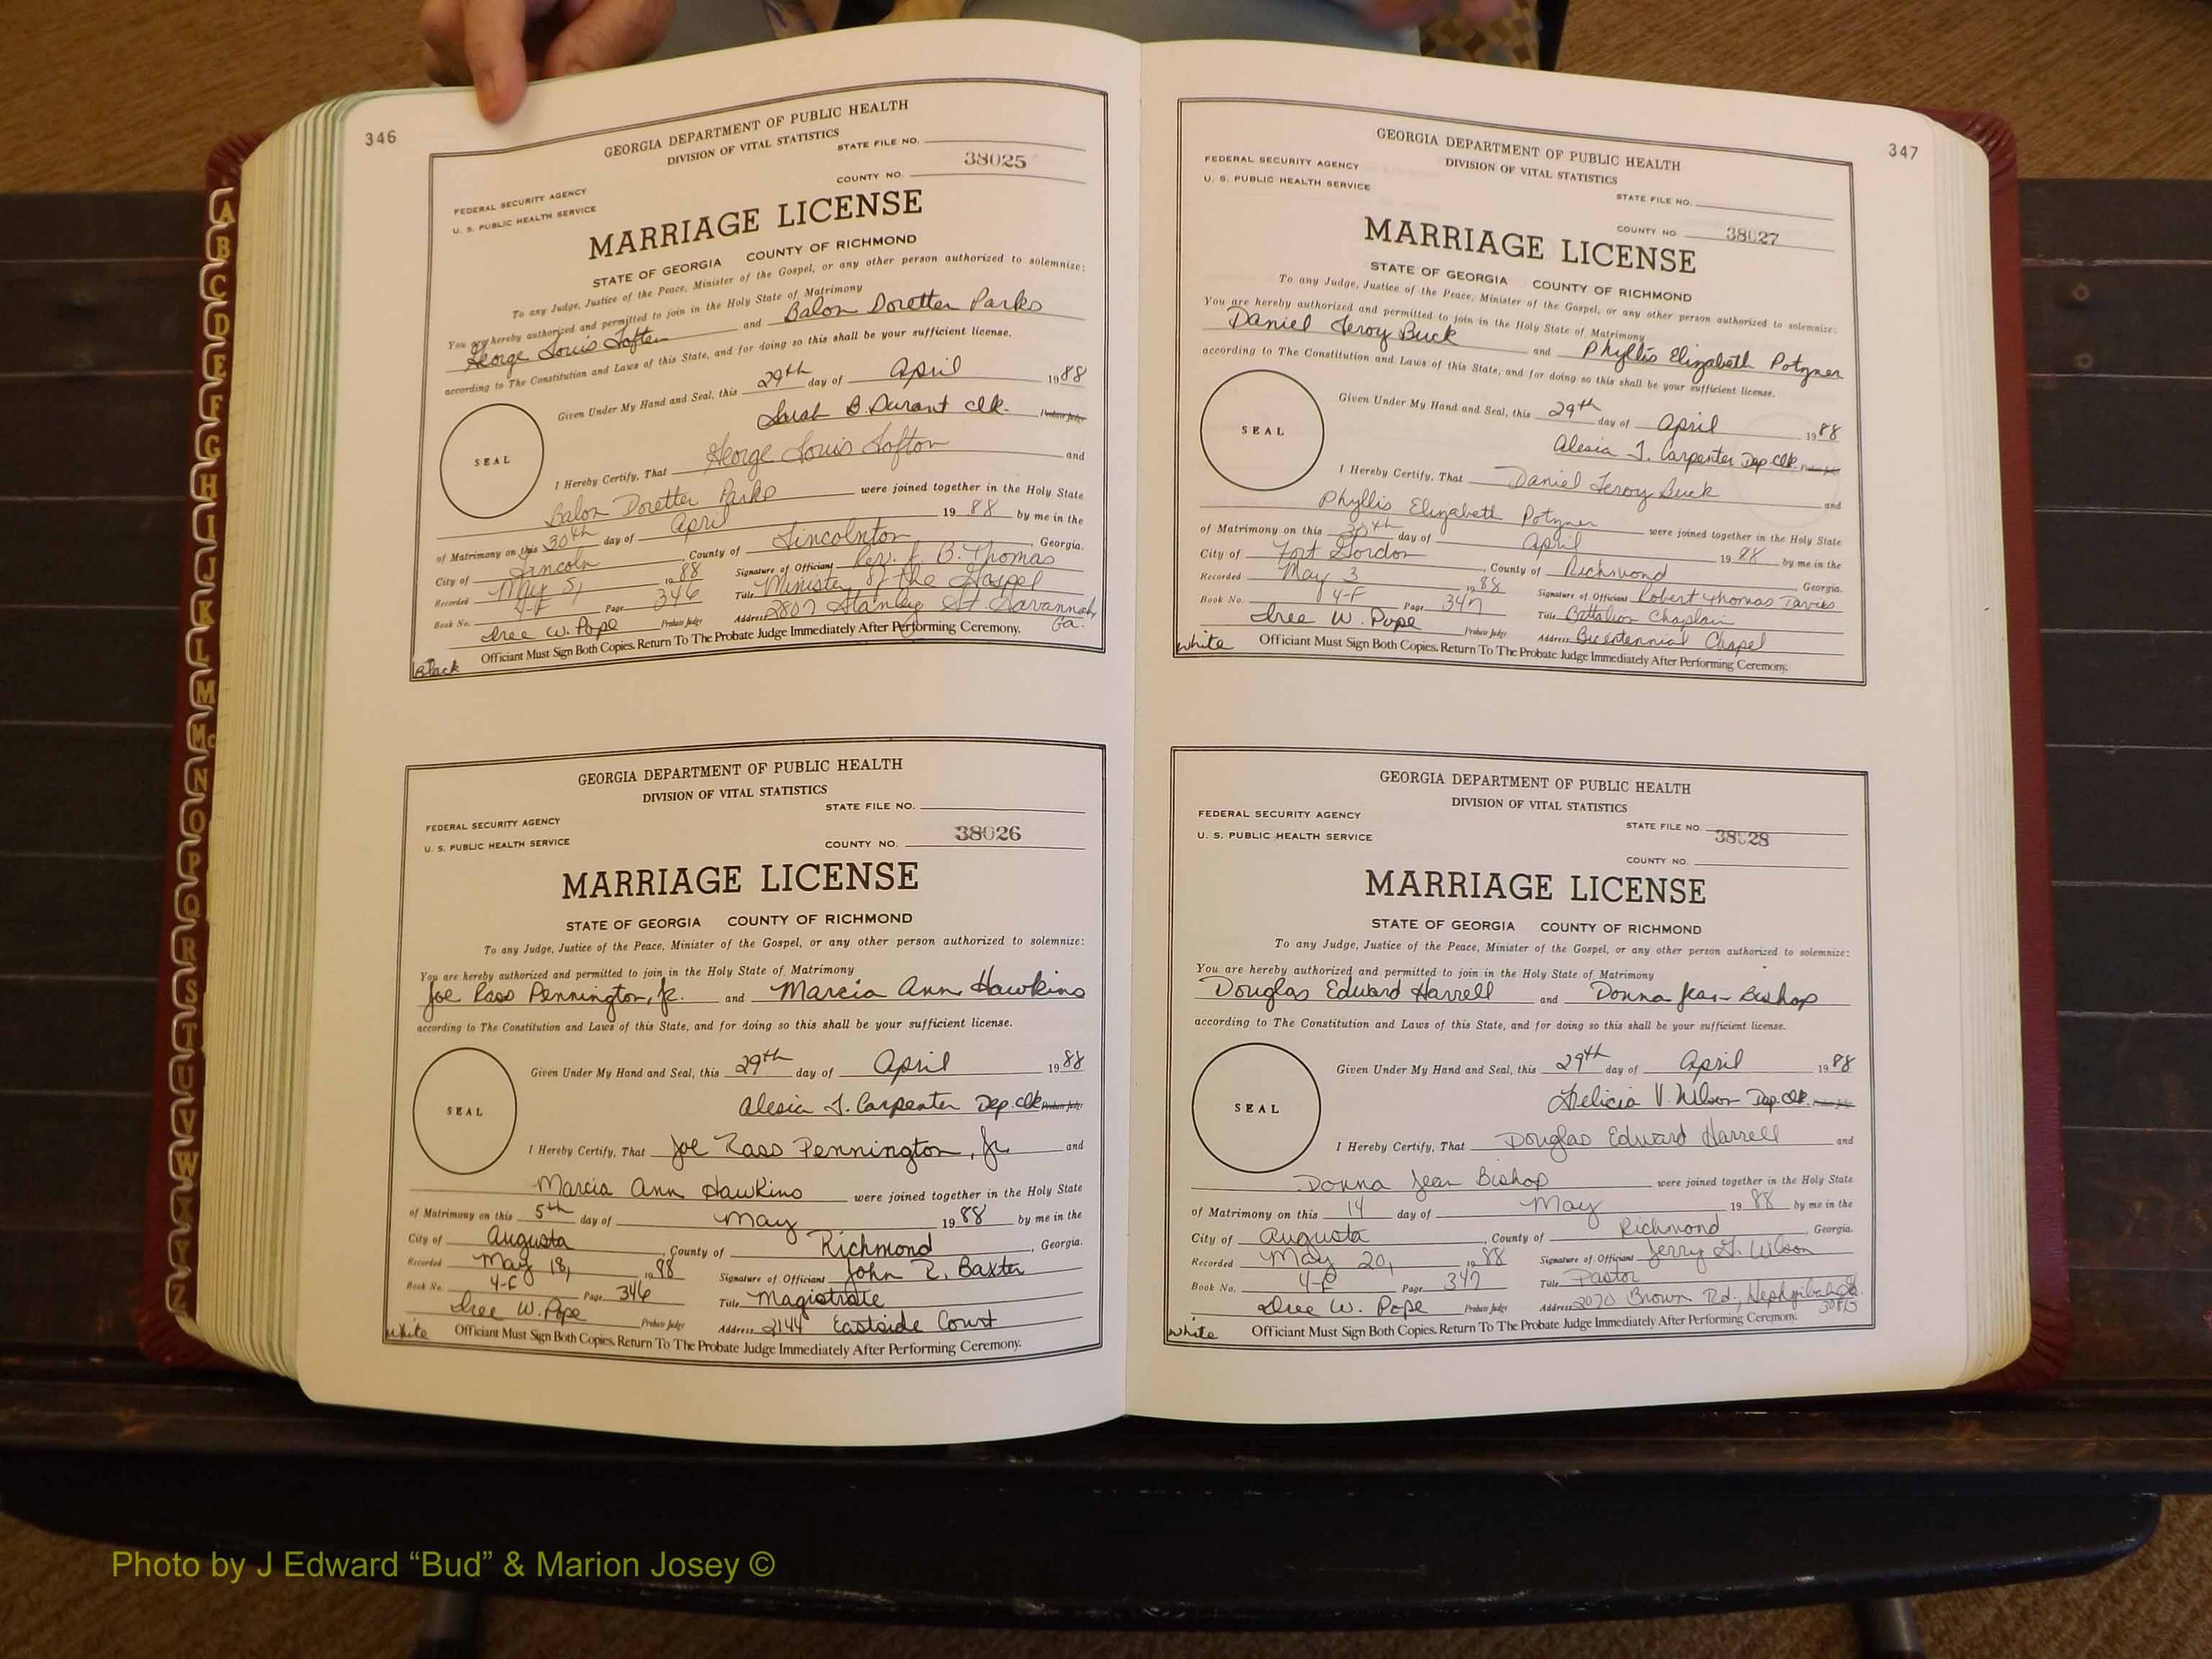 346
GEORGIA DEPARTMENT OF PUBLIC HEALTH
DIVISION OF VITAL STATISTICS
STATE FILE NO.
38025
COUNTY NO.
FEDERAL SECURITY AGENCY
U. S. PUBLIC HEALTH SERVICE
MARRIAGE LICENSE
STATE OF GEORGIA COUNTY OF RICHMOND
To any Judge, Justice of the Peace, Minister of the Gospel, or any other person authorized to solemnize:
You are hereby authorized and permitted to join in the Holy State of Matrimony
George Louis Lofton and Balon Doretter Parks
according to The Constitution and Laws of this State, and for doing so this shall be your sufficient license.
Given Under My Hand and Seal, this 29th day of April 1988
Sarah B. Durant clk. Probate Judge
SEAL
I Hereby Certify, That George Louis Lofton and
Balon Doretter Parks were joined together in the Holy State
of Matrimony on this 30th day of April 1988 by me in the
City of Lincoln, County of Lincolnton, Georgia.
Recorded May 5, 1988 Signature of Officiant Rev. J. B. Thomas
Book No. 4-F Page 346 Title Minister of the Gospel
Dree W. Pope Probate Judge Address 2807 Stanley St. Savannah, Ga.
Officiant Must Sign Both Copies. Return To The Probate Judge Immediately After Performing Ceremony.
Black
GEORGIA DEPARTMENT OF PUBLIC HEALTH
DIVISION OF VITAL STATISTICS
STATE FILE NO.
FEDERAL SECURITY AGENCY
38026
U. S. PUBLIC HEALTH SERVICE
COUNTY NO.
MARRIAGE LICENSE
STATE OF GEORGIA COUNTY OF RICHMOND
To any Judge, Justice of the Peace, Minister of the Gospel, or any other person authorized to solemnize:
You are hereby authorized and permitted to join in the Holy State of Matrimony
Joe Ross Pennington, Jr. and Marcia Ann Hawkins
according to The Constitution and Laws of this State, and for doing so this shall be your sufficient license.
Given Under My Hand and Seal, this 29th day of April 1988
Alesia J. Carpenter Dep. Clk. Probate Judge
SEAL
I Hereby Certify, That Joe Ross Pennington, Jr. and
Marcia Ann Hawkins were joined together in the Holy State
of Matrimony on this 5th day of May 1988 by me in the
City of Augusta, County of Richmond, Georgia.
Recorded May 18, 1988 Signature of Officiant John R. Baxter
Book No. 4-F Page 346 Title Magistrate
Dree W. Pope Probate Judge Address 2144 Eastside Court
Officiant Must Sign Both Copies. Return To The Probate Judge Immediately After Performing Ceremony.
White
347
GEORGIA DEPARTMENT OF PUBLIC HEALTH
DIVISION OF VITAL STATISTICS
FEDERAL SECURITY AGENCY
U. S. PUBLIC HEALTH SERVICE
STATE FILE NO.
COUNTY NO. 38027
MARRIAGE LICENSE
STATE OF GEORGIA COUNTY OF RICHMOND
To any Judge, Justice of the Peace, Minister of the Gospel, or any other person authorized to solemnize:
You are hereby authorized and permitted to join in the Holy State of Matrimony
Daniel Leroy Buck and Phyllis Elizabeth Potzner
according to The Constitution and Laws of this State, and for doing so this shall be your sufficient license.
Given Under My Hand and Seal, this 29th day of April 1988
Alesia J. Carpenter Dep. Clk. Probate Judge
SEAL
I Hereby Certify, That Daniel Leroy Buck and
Phyllis Elizabeth Potzner were joined together in the Holy State
of Matrimony on this 30th day of April 1988 by me in the
City of Fort Gordon, County of Richmond, Georgia.
Recorded May 3 1988 Signature of Officiant Robert Thomas Davies
Book No. 4-F Page 347 Title Battalion Chaplain
Dree W. Pope Probate Judge Address Bicentennial Chapel
Officiant Must Sign Both Copies. Return To The Probate Judge Immediately After Performing Ceremony.
White
GEORGIA DEPARTMENT OF PUBLIC HEALTH
DIVISION OF VITAL STATISTICS
FEDERAL SECURITY AGENCY
U. S. PUBLIC HEALTH SERVICE
STATE FILE NO. 38028
COUNTY NO.
MARRIAGE LICENSE
STATE OF GEORGIA COUNTY OF RICHMOND
To any Judge, Justice of the Peace, Minister of the Gospel, or any other person authorized to solemnize:
You are hereby authorized and permitted to join in the Holy State of Matrimony
Douglas Edward Harrell and Donna Jean Bishop
according to The Constitution and Laws of this State, and for doing so this shall be your sufficient license.
Given Under My Hand and Seal, this 29th day of April 1988
Felicia V. Wilson Dep. Clk. Probate Judge
SEAL
I Hereby Certify, That Douglas Edward Harrell and
Donna Jean Bishop were joined together in the Holy State
of Matrimony on this 14 day of May 1988 by me in the
City of Augusta, County of Richmond, Georgia.
Recorded May 20, 1988 Signature of Officiant Jerry G. Wilson
Book No. 4-F Page 347 Title Pastor
Dree W. Pope Probate Judge Address 2070 Brown Rd., Hephzibah Ga. 30815
Officiant Must Sign Both Copies. Return To The Probate Judge Immediately After Performing Ceremony.
White
A
B
C
D
E
F
G
H
I
J
K
L
M
Mc
N
O
P
Q
R
S
T
U
V
W
X
Y
Z
Photo by J Edward “Bud” & Marion Josey ©